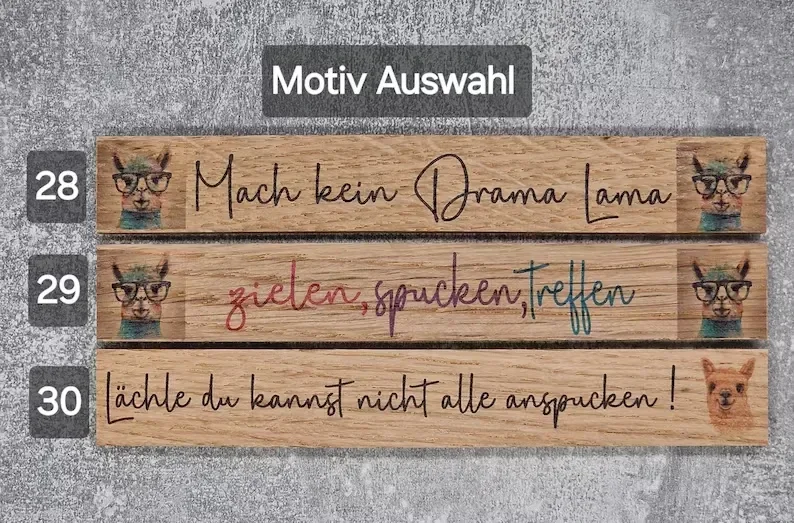 Motiv Auswahl
28
Mach kein Drama Lama
29
zielen,spucken,treffen
30
Lächle du kannst nicht alle anspucken !